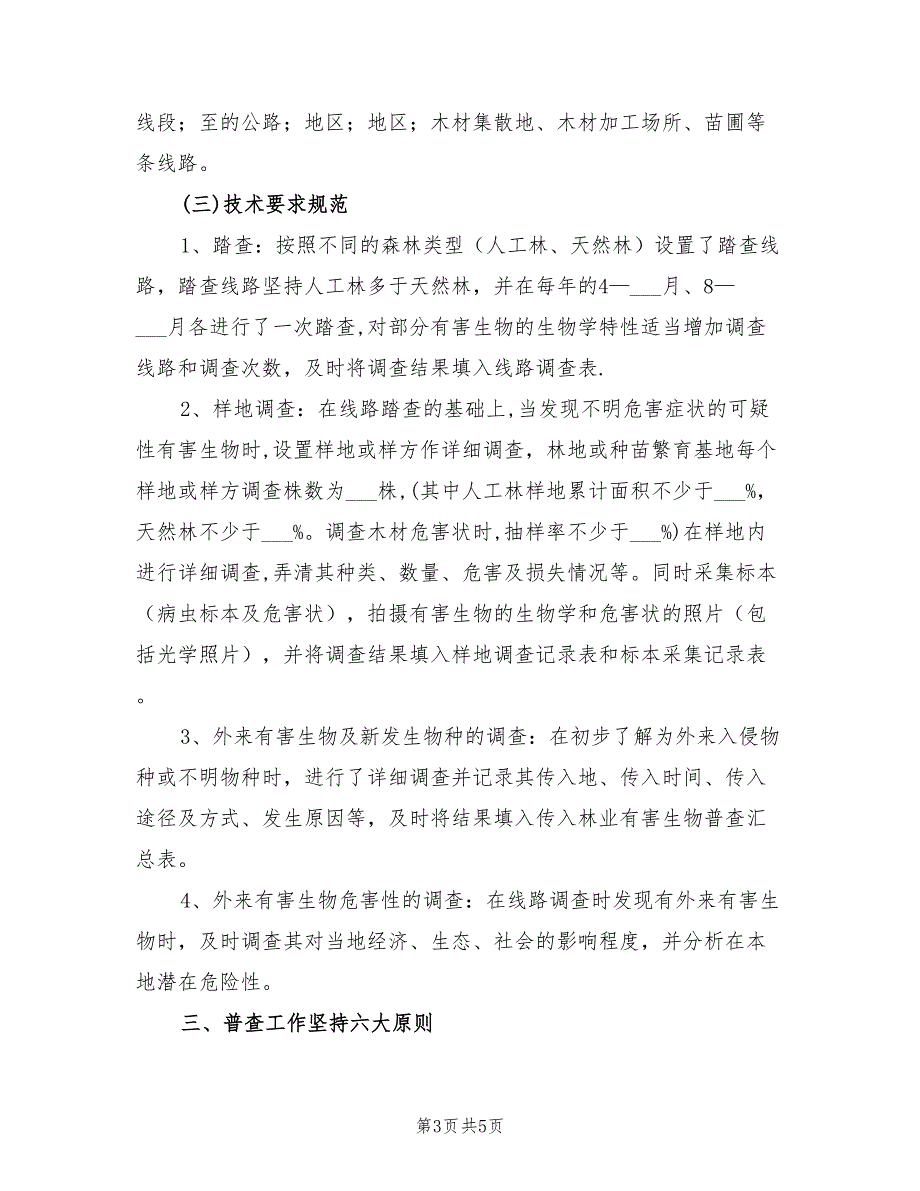 线段；至的公路；地区；地区；木材集散地、木材加工场所、苗圃等
条线路。
(三)技术要求规范
1、踏查：按照不同的森林类型（人工林、天然林）设置了踏查线
路，踏查线路坚持人工林多于天然林，并在每年的4—___月、8—
___月各进行了一次踏查,对部分有害生物的生物学特性适当增加调查
线路和调查次数，及时将调查结果填入线路调查表.
2、样地调查：在线路踏查的基础上,当发现不明危害症状的可疑
性有害生物时,设置样地或样方作详细调查，林地或种苗繁育基地每个
样地或样方调查株数为___株,(其中人工林样地累计面积不少于___%，
天然林不少于___%。调查木材危害状时,抽样率不少于___%)在样地内
进行详细调查,弄清其种类、数量、危害及损失情况等。同时采集标本
（病虫标本及危害状），拍摄有害生物的生物学和危害状的照片（包
括光学照片），并将调查结果填入样地调查记录表和标本采集记录表
。
3、外来有害生物及新发生物种的调查：在初步了解为外来入侵物
种或不明物种时，进行了详细调查并记录其传入地、传入时间、传入
途径及方式、发生原因等，及时将结果填入传入林业有害生物普查汇
总表。
4、外来有害生物危害性的调查：在线路调查时发现有外来有害生
物时，及时调查其对当地经济、生态、社会的影响程度，并分析在本
地潜在危险性。
三、普查工作坚持六大原则
第3页共5页